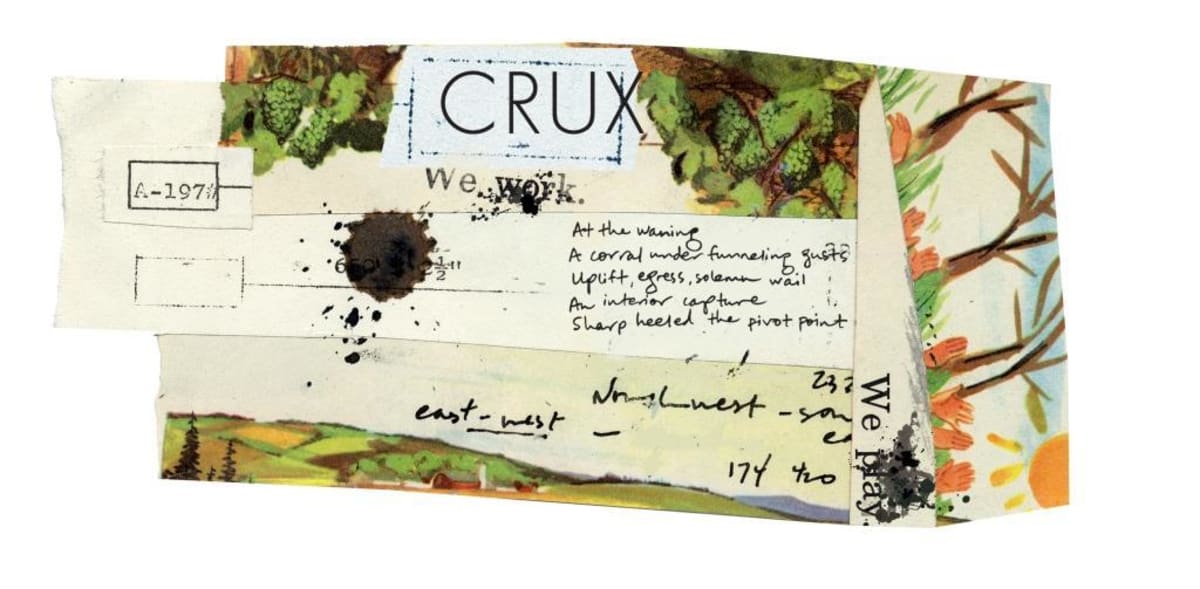 CRUX
We work.
A-197
2½"
At the waning
A corral under funneling gusts
Uplift, egress, solemn wail
An interior capture
Sharp heeled the pivot point
232
east-west
Northwest - sou
ea
174 420
We play.